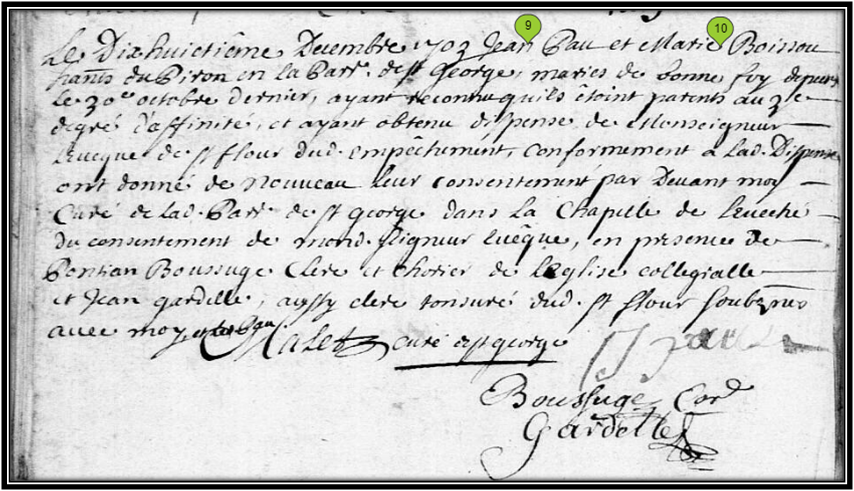 9 10
Le Dixhuictiême Decembre 1703 Jean Pau et Marie Boissou
hants du Piron en la Parr. de st George, mariés de bonne foy depuis
le 30e octobre dernier, ayant reconnu quils étoint parents au 3e
degré d'affinité, et ayant obtenu dispense de Monseigneur
Leveque de st flour dud. empêchement, conformement à lad. Dispense
ont donné de nouveau leur consentement par Devant moy
Curé de lad. Parr. de st george dans la Chapelle de Leveché
du consentement de mond. seigneur Evêque, en presence de
Pontian Boussuge Clerc et chorier de l'Eglise collegialle
et Jean gardelle, aussy clerc tonsuré dud. st flour soubznes
avec moy
Malet curé de st george
Boussuge Cord
Gardelle